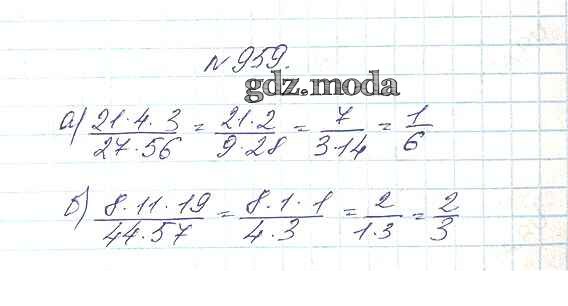 №959.
gdz.moda
а) 21·4·3/27·56 = 21·2/9·28 = 7/3·14 = 1/6
б) 8·11·19/44·57 = 8·1·1/4·3 = 2/1·3 = 2/3